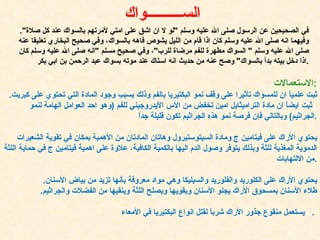 الســــــــواك
في الصحيحين عن الرسول صلى الله عليه وسلم "لو لا ان اشق على امتي لأمرتهم بالسواك عند كل صلاة".
وفيهما انه صلى الله عليه وسلم كان اذا قام من الليل يشوص فاهه بالسواك، وفي صحيح البخاري تعليقا عنه
صلى الله عليه وسلم " السواك مطهرة للفم مرضاة للرب"، وفي صحيح مسلم "انه صلى الله عليه وسلم كان
اذا دخل بيته بدأ بالسواك" وصح عنه من حديث انه استاك عند موته بسواك عبد الرحمن بن ابي بكر.
الاستعمالات:
ثبت علمياً ان للمسواك تأثيرا على وقف نمو البكتيريا بالفم وذلك بسبب وجود المادة التي تحتوي على كبريت.
ثبت ايضاً ان مادة الترايميثايل امين تخفض من الأس الأيدروجيني للفم (وهو احد العوامل الهامة لنمو
الجراثيم) وبالتالي فإن فرصة نمو هذه الجراثيم تكون قليلة جداً.
يحتوي الأراك على فيتامين ج ومادة السيتوستيرول وهاتان المادتان من الأهمية بمكان في تقوية الشعيرات
الدموية المغذية للثة وبذلك يتوفر وصول الدم اليها بالكمية الكافية، علاوة على اهمية فيتامين ج في حماية اللثة
من الالتهابات.
يحتوي الأراك على الكلوريد والفلوريد والسيليكا وهي مواد معروفة بأنها تزيد من بياض الأسنان.
طلاء الأسنان بمسحوق الأراك يجلو الأسنان ويقويها ويصلح اللثة وينقيها من الفضلات والجراثيم.
يستعمل منقوع جذور الأراك شرباً لقتل انواع البكتيريا في الأمعاء .